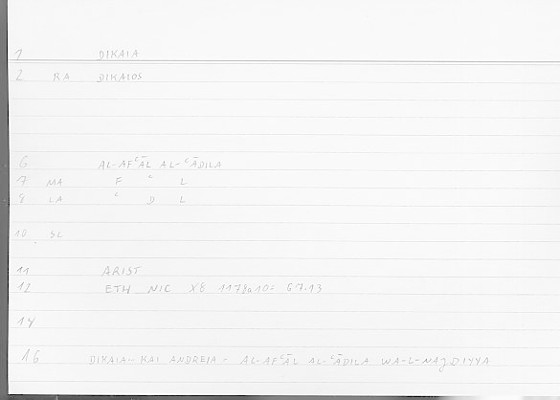 1 DIKAIA
2 RA DIKAIOS
6 AL-AFʿĀL AL-ʿĀDILA
7 MA F ʿ L
8 LA ʿ D L
10 SL
11 ARIST
12 ETH NIC X8 1178a10=
14
16 DIKAIA-- KAI ANDREIA - AL-AFʿĀL AL-ʿĀDILA WA-L-NAJDIYYA